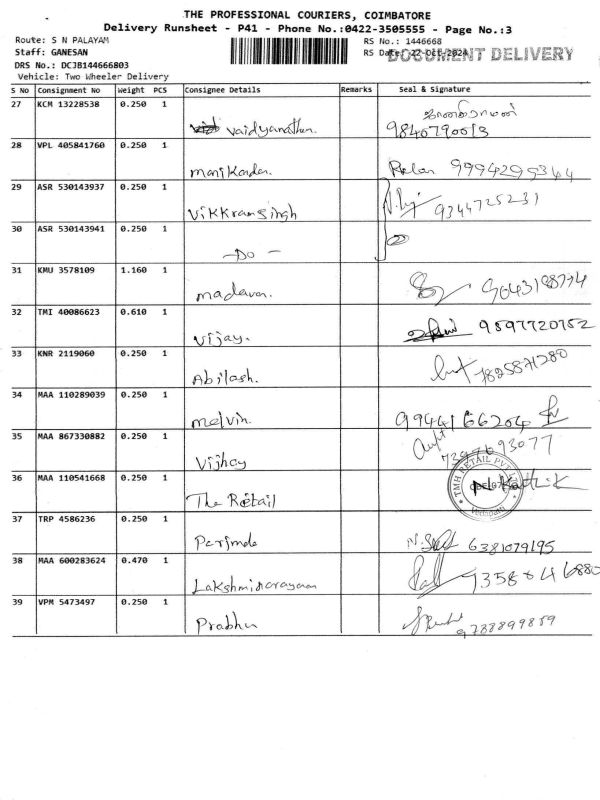 THE PROFESSIONAL COURIERS, COIMBATORE
Delivery Runsheet - P41 - Phone No.:0422-3505555 - Page No.:3
Route: S N PALAYAM
RS No.: 1446668
Staff: GANESAN
RS Date: 22-Oct-2024
DOCUMENT DELIVERY
DRS No.: DCJB144666803
Vehicle: Two Wheeler Delivery
S No Consignment No Weight PCS Consignee Details Remarks Seal & Signature
27 KCM 13228538 0.250 1
Vaidyanathan.
9840790013
28 VPL 405841760 0.250 1
Manikandan. 9994295344
29 ASR 530143937 0.250 1
Vikkramsingh 9344725231
30 ASR 530143941 0.250 1
-Do-
31 KMU 3578109 1.160 1
madavan. 9043188774
32 TMI 40086623 0.610 1
Vijay. 9597720752
33 KNR 2119060 0.250 1
Abilash. 7825871280
34 MAA 110289039 0.250 1
melvin. 9944166204
35 MAA 867330882 0.250 1
Vijhay 7397693077
36 MAA 110541668 0.250 1
The Retail
TMH RETAIL PVT L
37 TRP 4586236 0.250 1
6381079195
38 MAA 600283624 0.470 1
Lakshminarayanan
39 VPM 5473497 0.250 1
Prabhu 9788899859